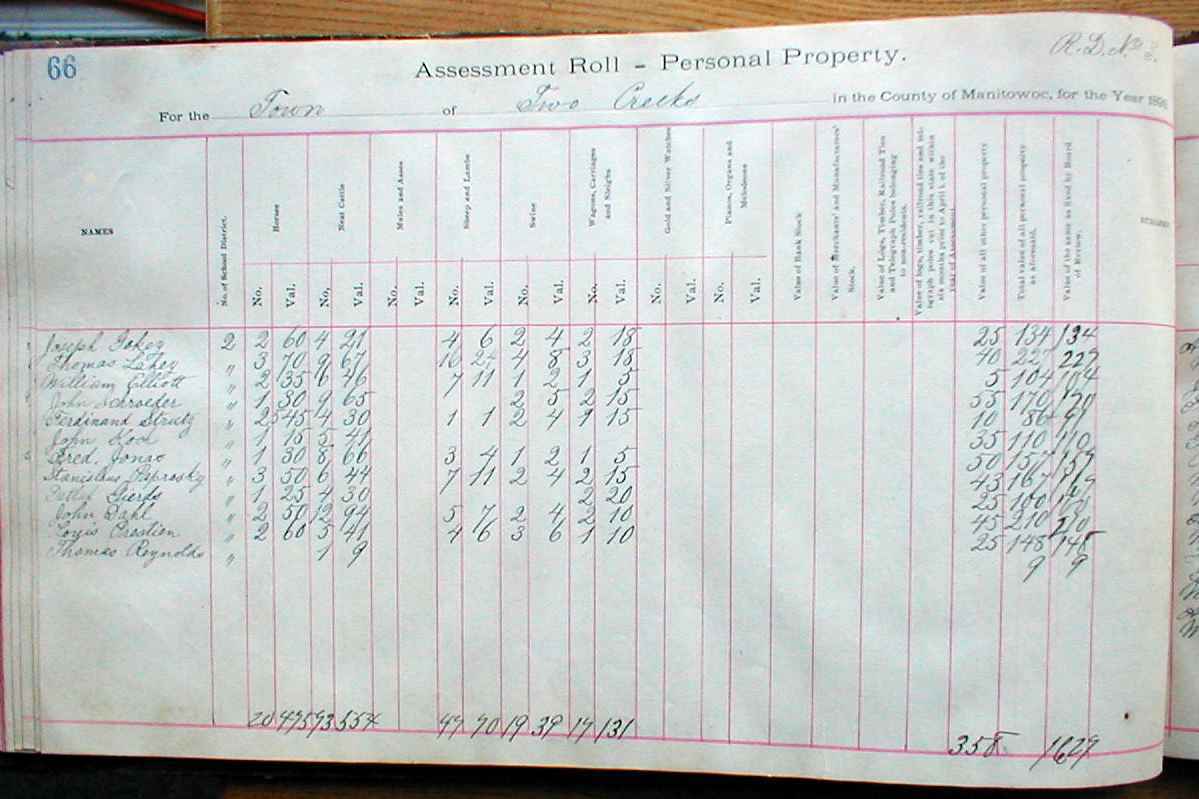 66
Assessment Roll – Personal Property.
R.D. No 3.
For the Town of Two Creeks in the County of Manitowoc, for the Year
NAMES
No. of School District.
Horses
Neat Cattle
Mules and Asses
Sheep and Lambs
Swine
Wagons, Carriages and Sleighs
Gold and Silver Watches
Pianos, Organs and Melodeons
Value of Bank Stock
Value of Merchants' and Manufacturers' Stock.
Value of Logs, Timber, Railroad Ties and Telegraph Poles belonging to non-residents.
Value of logs, timber, railroad ties and telegraph poles cut in this state within six months prior to April 1, of the year of Assessment.
Value of all other personal property
Total value of all personal property as aforesaid.
Value of the same as fixed by Board of Review.
No. Val. No. Val. No. Val. No. Val. No. Val. No. Val. No. Val. No. Val.
Joseph Fahey 2 2 60 4 21 4 6 2 4 2 18 25 134 134
Thomas Lahey " 3 70 9 67 16 24 4 8 3 18 40 227 227
William Elliott " 2 35 6 46 7 11 1 2 1 5 5 104 104
John Schroeder " 1 30 9 65 2 5 2 15 55 170 170
Ferdinand Strutz " 2 45 4 30 1 1 2 4 15 10
John " 1 15 5 41 35 110 110
Fred. Jonas " 1 30 8 66 3 4 1 2 1 5 50 157 157
Stanislaus Paprosky " 3 50 6 44 7 11 2 4 2 15 43 167 167
Detlef Gierds " 1 25 4 30 2 20 25 100 100
John Dahl " 2 50 12 94 5 7 2 4 2 10 45 210 210
Louis " 2 60 5 41 4 6 3 6 1 10 25 148 148
Thomas Reynolds " 1 9 9 9
20 475 73 554 47 70 19 39 17 131 358 1629